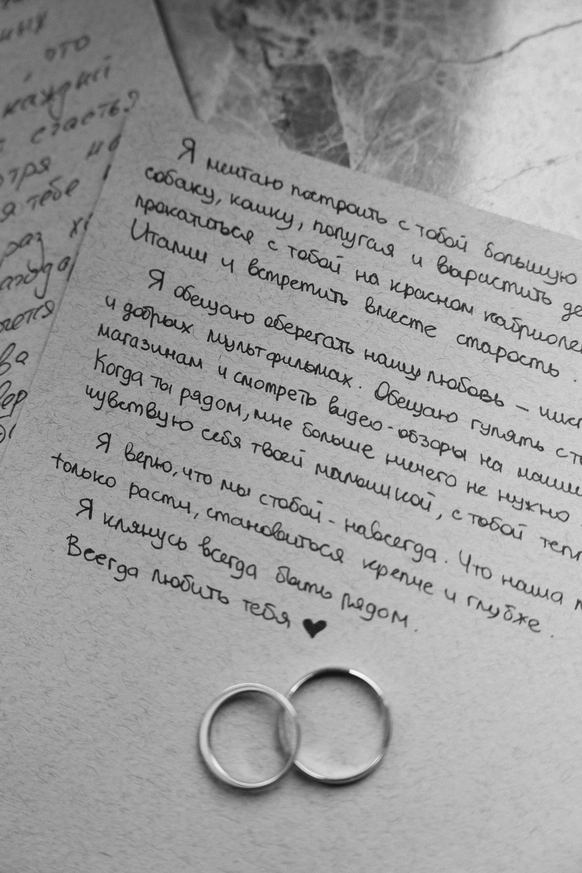 ных
, это
каждый
счастье?
тря на
я тебе
раз
ва
Я мечтаю построить с тобой большую
собаку, кошку, попугая и вырастить де
прокатиться с тобой на красном кабриоле
Италии и встретить вместе старость.
Я обещаю оберегать нашу любовь – чист
и добрых мультфильмах. Обещаю гулять с то
магазинам и смотреть видео-обзоры на маши
Когда ты рядом, мне больше ничего не нужно
чувствую себя твоей малышкой, с тобой тепл
Я верю, что мы с тобой - навсегда. Что наша
только расти, становиться крепче и глубже.
Я клянусь всегда быть рядом.
Всегда любить тебя ♥